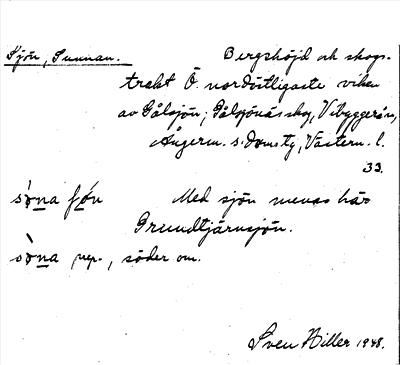 Sjön, Sunnan.
Bergshöjd och skogs-
trakt Ö. nordöstligaste viken
av Gålsjön; Gålsjönäs skog, Vibyggerå sn,
Ångerm. s. domsty, Västern. l.
33.
sò̀na fǿn Med sjön menas här
Grundtjärnsjön.
sò̀na prep., söder om.
Sven Hiller 1948.